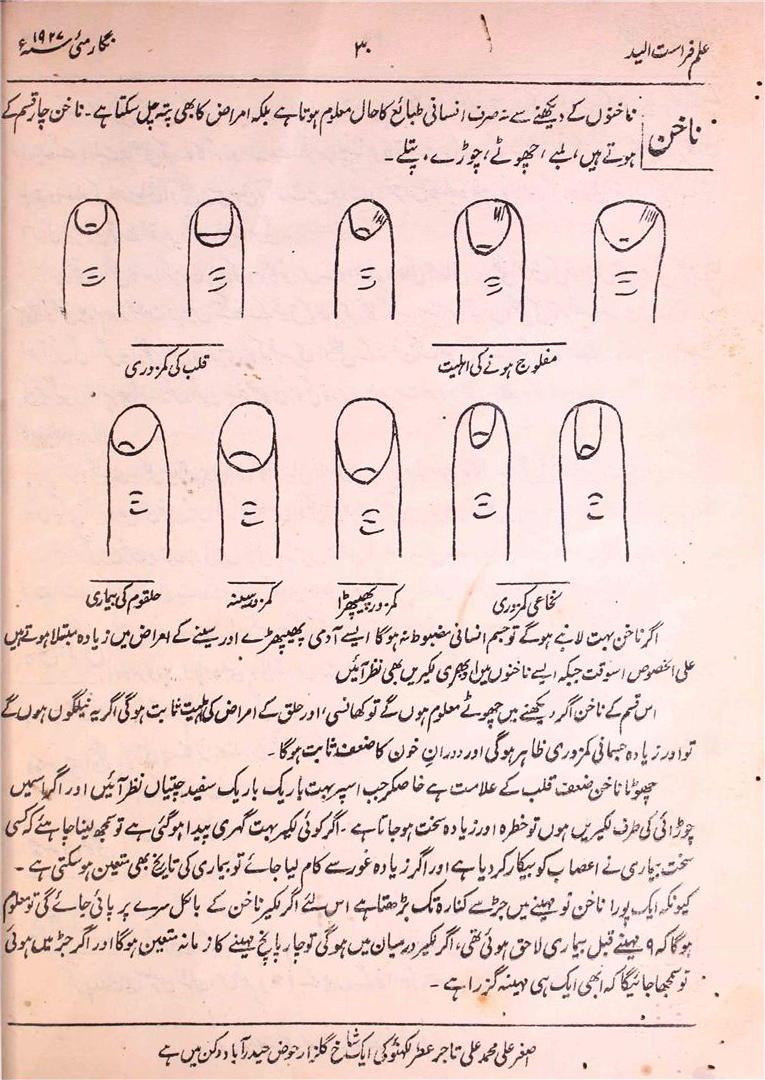 علم فراست الید
۳۰
نگار مئی ۱۹۲۷ء
ناخن
ناخنوں کے دیکھنے سے نہ صرف انسانی طبائع کا حال معلوم ہوتا ہے بلکہ امراض کا بھی پتہ چل سکتا ہے۔ ناخن چار قسم کے
ہوتے ہیں، لمبے، چھوٹے، چوڑے، پتلے۔
مفلوج ہونے کی اہلیت
قلب کی کمزوری
نخاعی کمزوری
کمزور پھیپھڑا
کمزور سینہ
حلقوم کی بیماری
اگر ناخن بہت لانبے ہوگے تو جسم انسانی مضبوط نہ ہوگا ایسے آدمی پھیپھڑے اور سینے کے امراض میں زیادہ مبتلا ہوتے ہیں
علی الخصوص اسوقت جبکہ ایسے ناخنوں میں ابھری لکیریں بھی نظر آئیں
اس قسم کے ناخن اگر دیکھنے میں چھوٹے معلوم ہوں گے تو کھانسی، اور حلق کے امراض کی اہلیت ثابت ہوگی اگر یہ نیلگوں ہوں گے
تو اور زیادہ جسمانی کمزوری ظاہر ہوگی اور دوران خون کا ضعف ثابت ہوگا۔
چھوٹا ناخن ضعف قلب کے علامت ہے خاصکر جب اسپر بہت باریک باریک سفید چتیاں نظر آئیں اور اگر اسمیں
چوڑائی کی طرف لکیریں ہوں تو خطرہ اور زیادہ سخت ہوجاتا ہے۔ اگر کوئی لکیر بہت گہری پیدا ہوگئی ہے تو سمجھ لینا چاہئے کہ کسی
سخت بیماری نے اعصاب کو بیکار کر دیا ہے اور اگر زیادہ غور سے کام لیا جائے تو بیماری کی تاریخ بھی متعین ہوسکتی ہے۔
کیونکہ ایک پورا ناخن نو مہینے میں جڑ سے کنارہ تک بڑھتا ہے اس لئے اگر لکیر ناخن کے بالکل سرے پر پائی جائے گی تو معلوم
ہوگا کہ ۹ مہینے قبل بیماری لاحق ہوئی تھی، اگر لکیر درمیان میں ہوگی تو چار پانچ مہینے کا زمانہ متعین ہوگا اور اگر جڑ میں ہوئی
تو سمجھا جائیگا کہ ابھی ایک ہی مہینہ گزرا ہے۔
اصغر علی محمد علی تاجر عطر لکھنؤ کی ایک شاخ گلزار حوض حیدرآباد دکن میں ہے